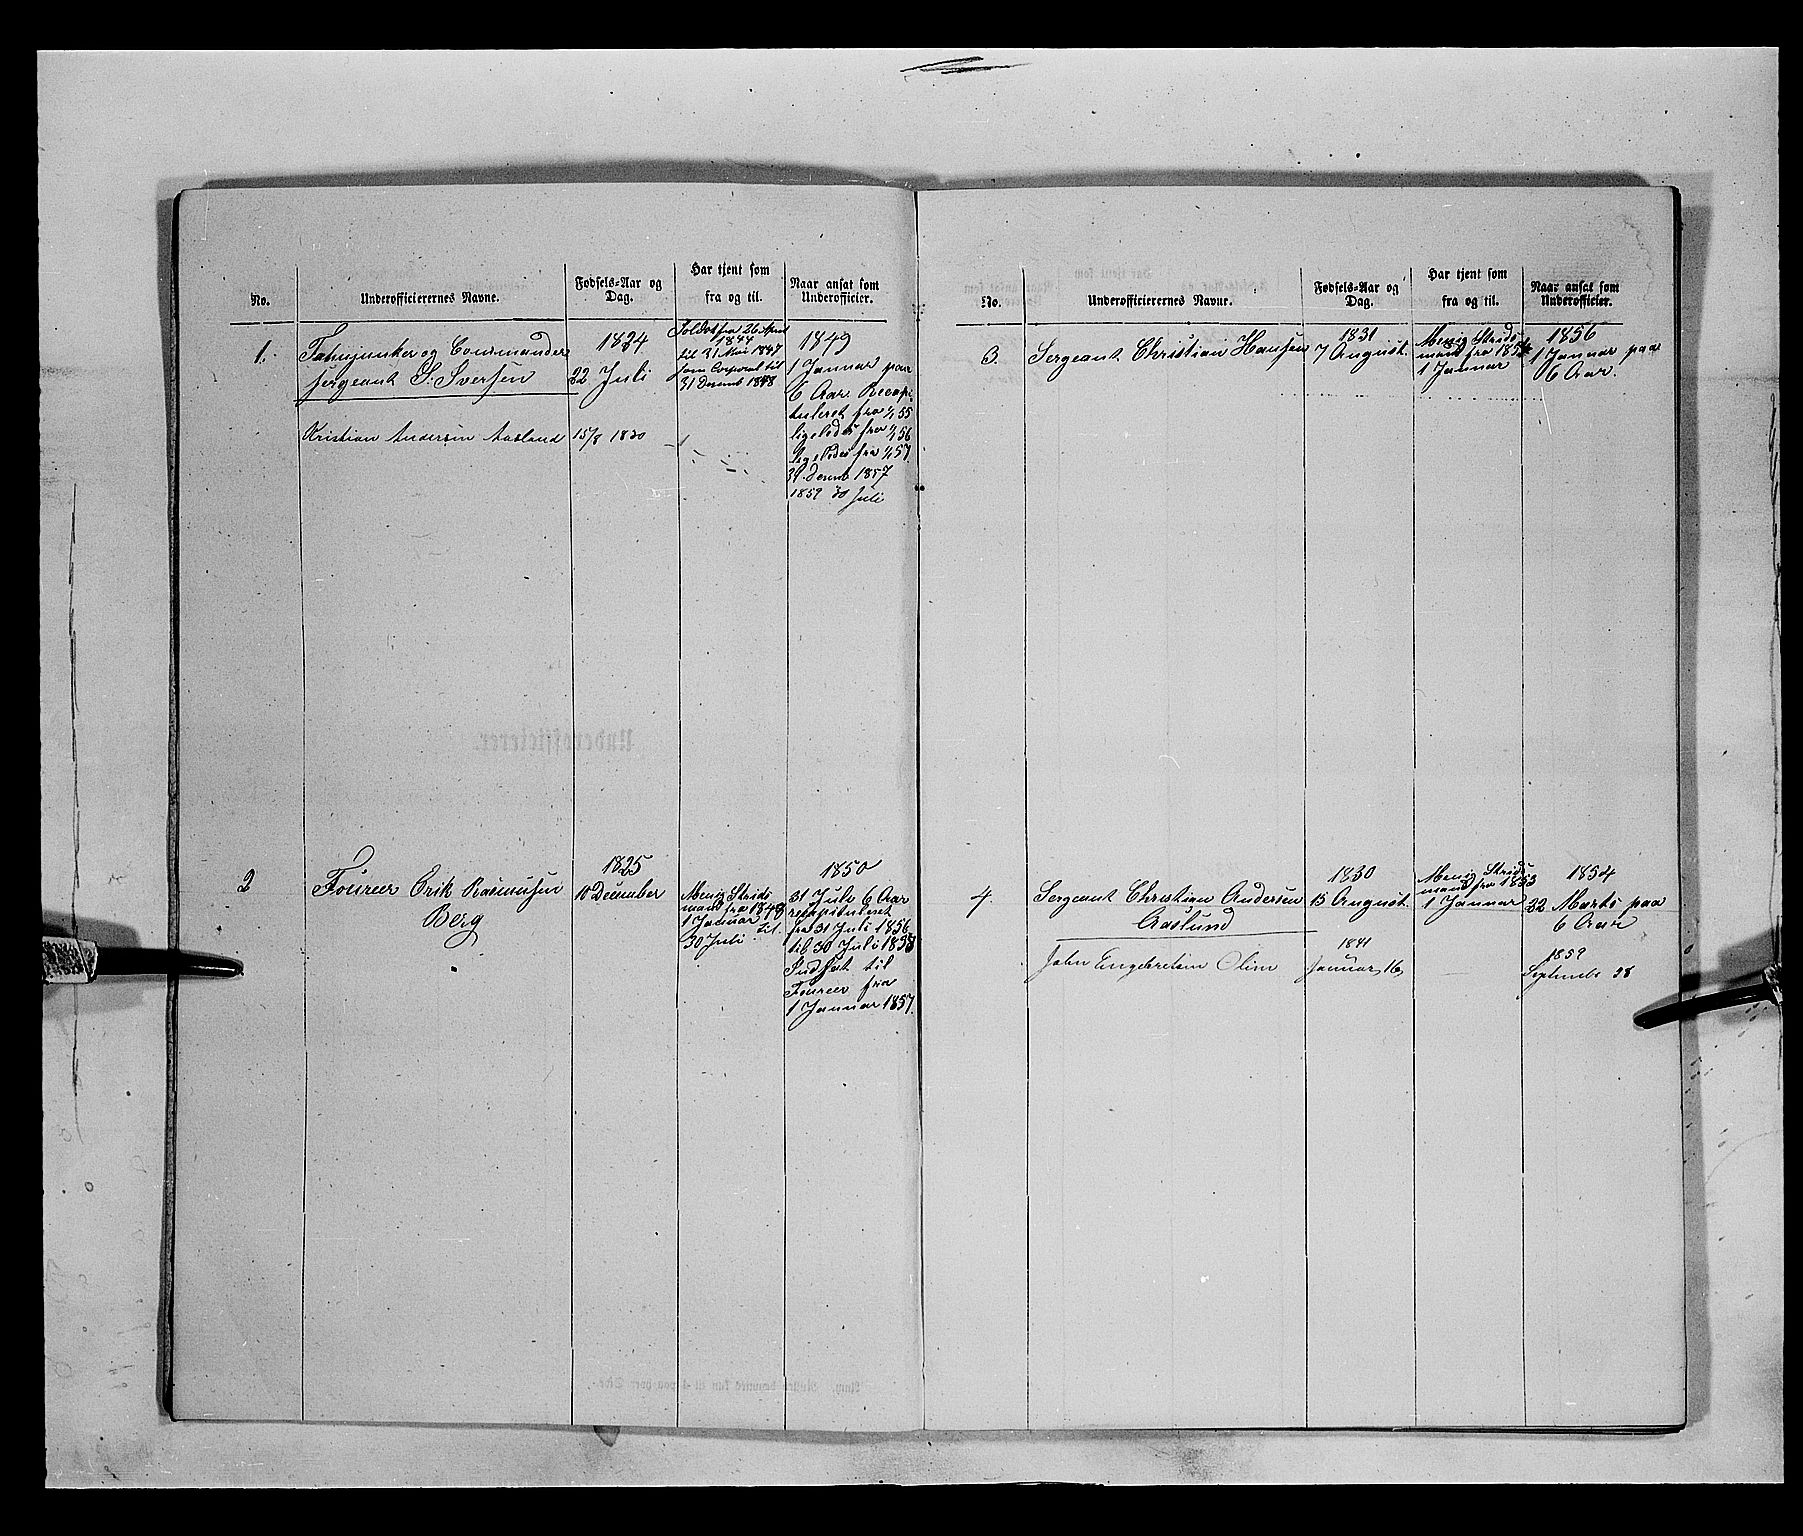 No.
Underofficierernes Navne.
Fødsels-Aar og
Dag.
Har tjent som
fra og til.
Naar ansat som
Underofficier.
1.
Fahnjunker og Commandeer
sergeant S. Iversen
1824
22 Juli
Soldat fra 26 April
1844
til 31 Mai 1847
som Corporal til
31 Decemb 1848
1849
1 Januar paa
6 Aar. Recapi-
tuleret fra 1/1 55
ligeledes fra 1/1 56
Ligeledes fra 1/1 57.
31 Decemb 1857
1859 30 Juli
Kristian Andersen Aaslund
15/8 1830
2
Foureer Erik Rasmussen
Berg
1825
10 December
Menig Strids
mand fra 1848
1 Januar til
30 Juli
1850
31 Juli 6 Aar
recapituleret
fra 31 Juli 1856
til 30 Juli 1858
Indsat til
Foureer fra
1 Januar 1857.
No.
Underofficierernes Navne.
Fødsels-Aar og
Dag.
Har tjent som
fra og til.
Naar ansat som
Underofficier.
3.
Sergeant Christian Hansen
1831
7 August.
Menig Strids
mand fra 1854
1 Januar
1856
1 Januar paa
6 Aar.
4.
Sergeant Christian Andersen
Aaslund
1830
15 August.
Menig Strids
mand fra 1853
1 Januar
1854
22 Marts paa
6 Aar
John Engebretsen Olim
1841
Januar 16
1859
Septembr 28
Underofficierer.